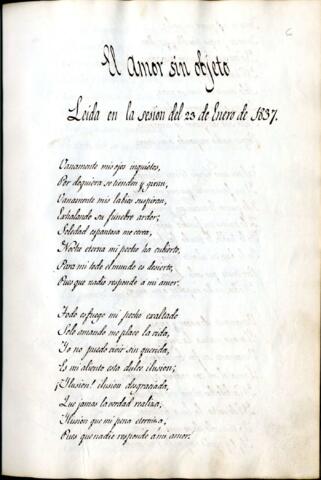 6
El Amor sin objeto
Leida en la sesion del 23 de Enero de 1837.
Vanamente mis ojos inquietos,
Por doquiera se tienden y giran,
Vanamente mis labios suspiran,
Exhalando su funebre ardor;
Soledad espantosa me cerca,
Noche eterna mi pecho ha cubierto,
Para mi todo el mundo es desierto,
Pues que nadie responde a mi amor.
Todo es fuego mi pecho exaltado
Solo amando me place la vida,
Yo no puedo vivir sin querida,
Es mi aliento esta dulce ilusion;
¡Ilusion! ilusion desgraciada,
Que jamas la verdad realiza,
Ilusion que mi pena eterniza,
Pues que nadie responde á mi amor.